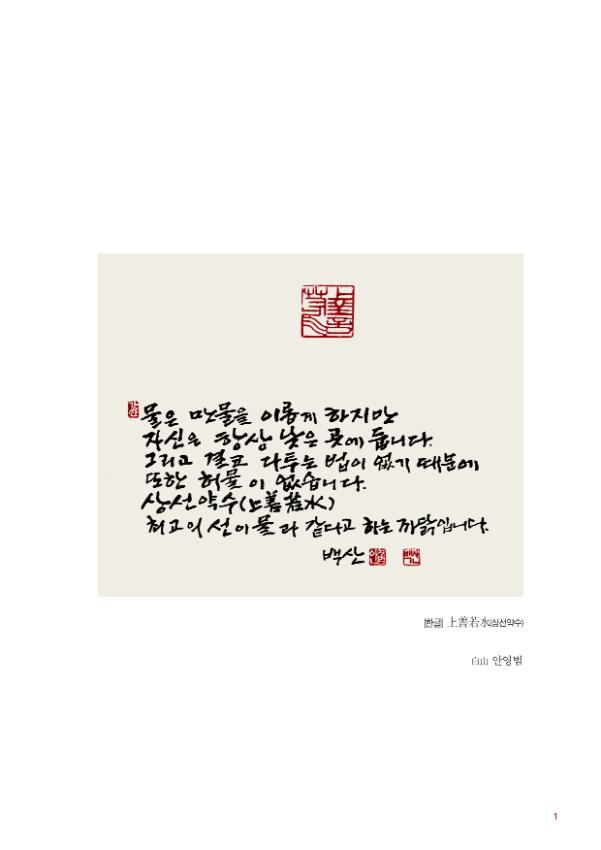 물은 만물을 이롭게 하지만
자신을 항상 낮은 곳에 둡니다.
그리고 결코 다투는 법이 없기 때문에
또한 허물이 없습니다.
상선약수(上善若水)
최고의 선이 물과 같다고 하는 까닭입니다.
백산
[한글] 上善若水(상선약수)
白山 안영범
1